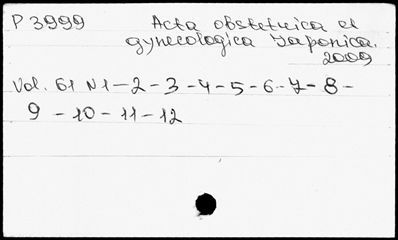 P 3999 Acta obstetrica et
gynecologica Japonica.
2009
Vol. 61 N 1 - 2 - 3 - 4 - 5 - 6 - 7 - 8 -
9 - 10 - 11 - 12